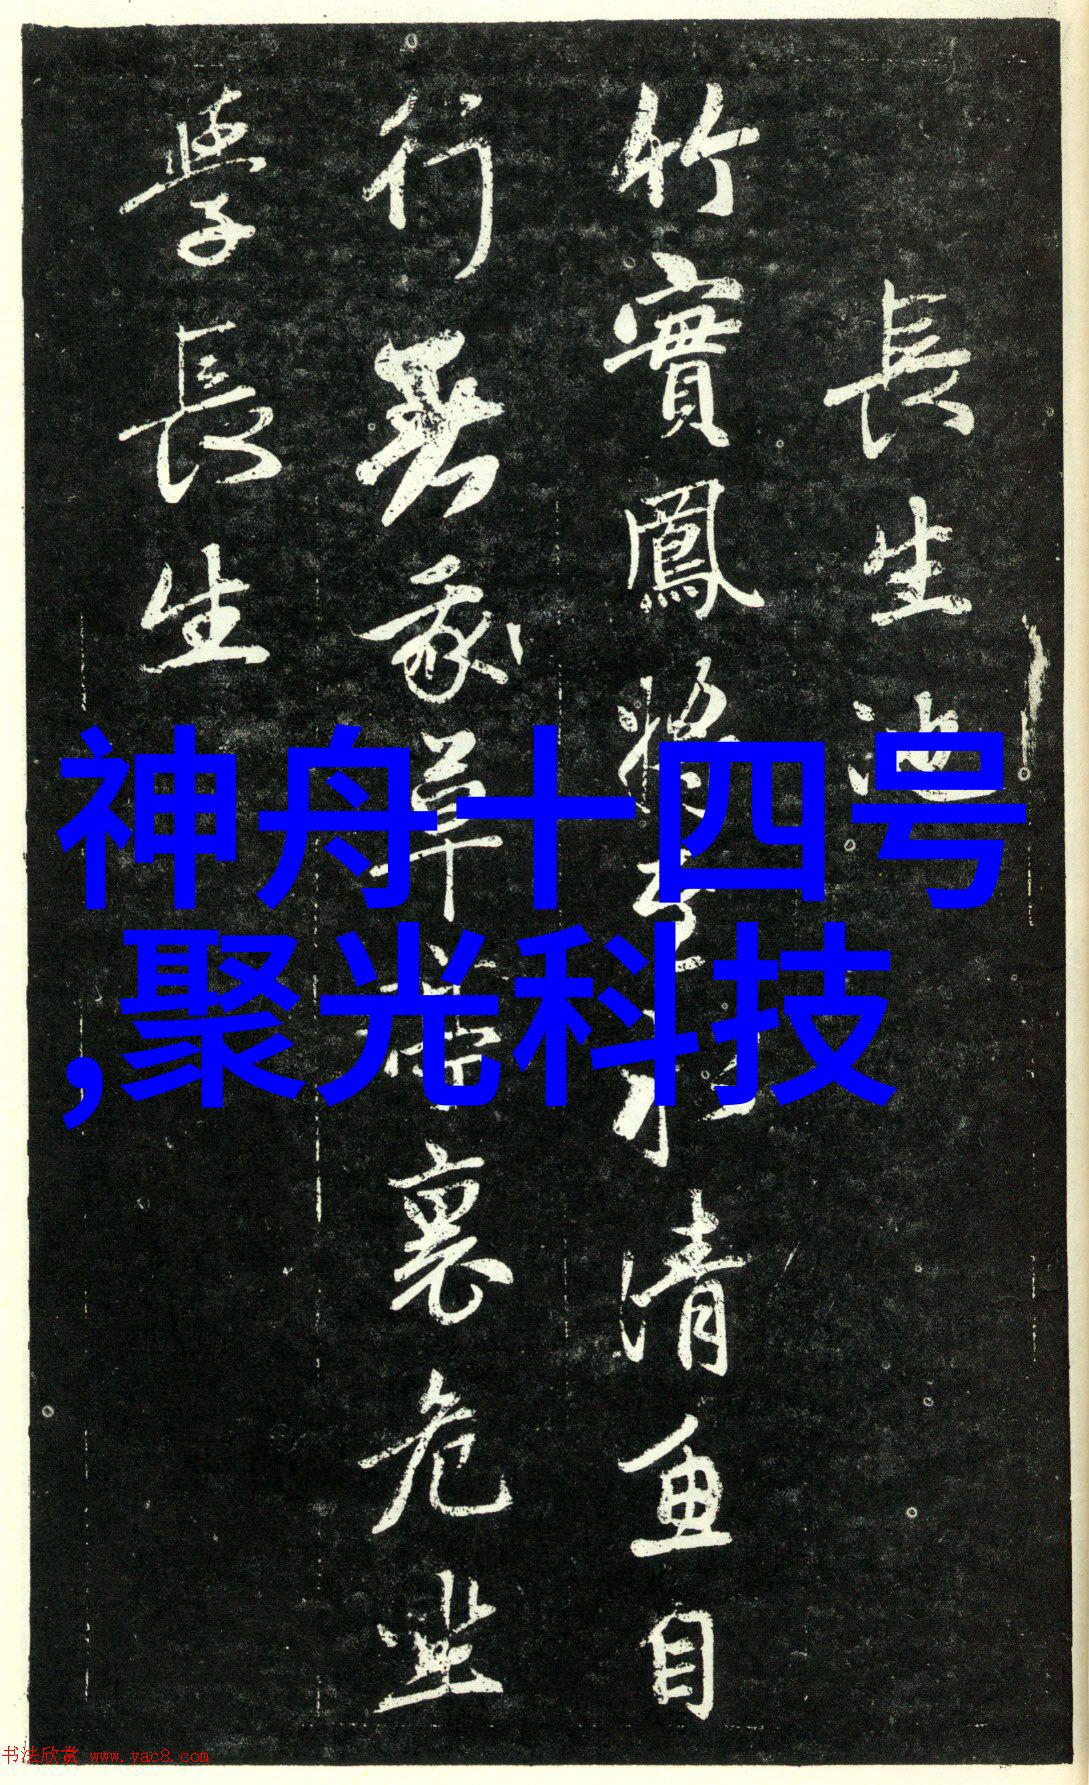 長生池
竹實鳳將至水清魚自
行家草堂裏危坐
學長生
神舟十四号
,聚光科技
书法欣赏 www.yac8.com